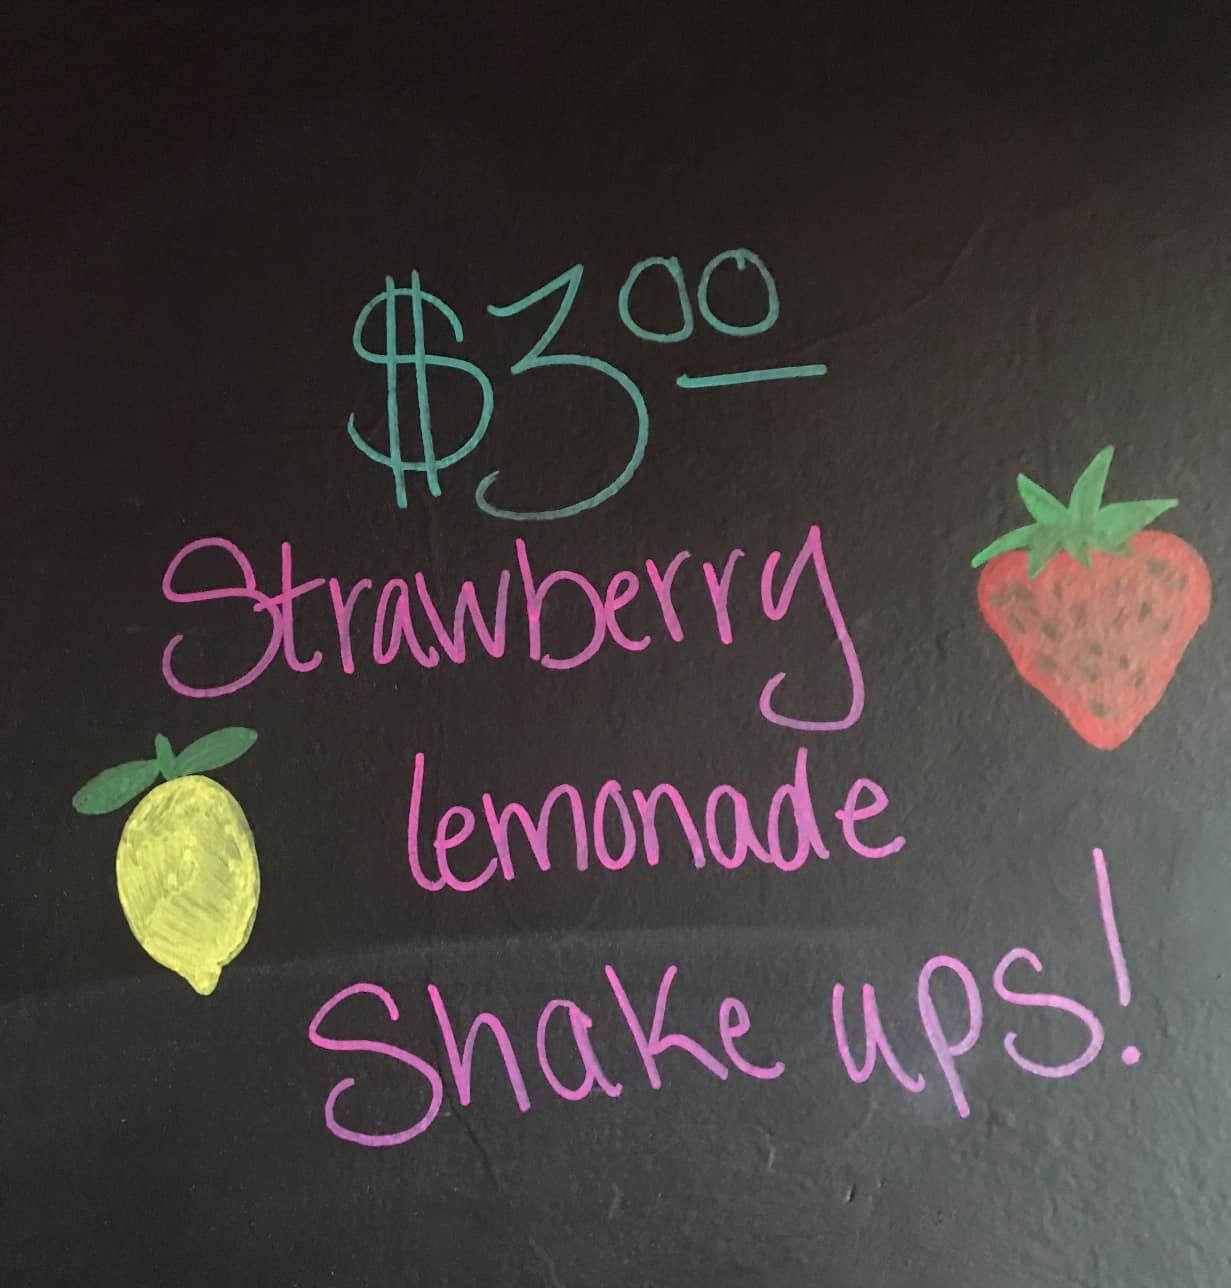 $3.00
Strawberry
lemonade
Shake ups!